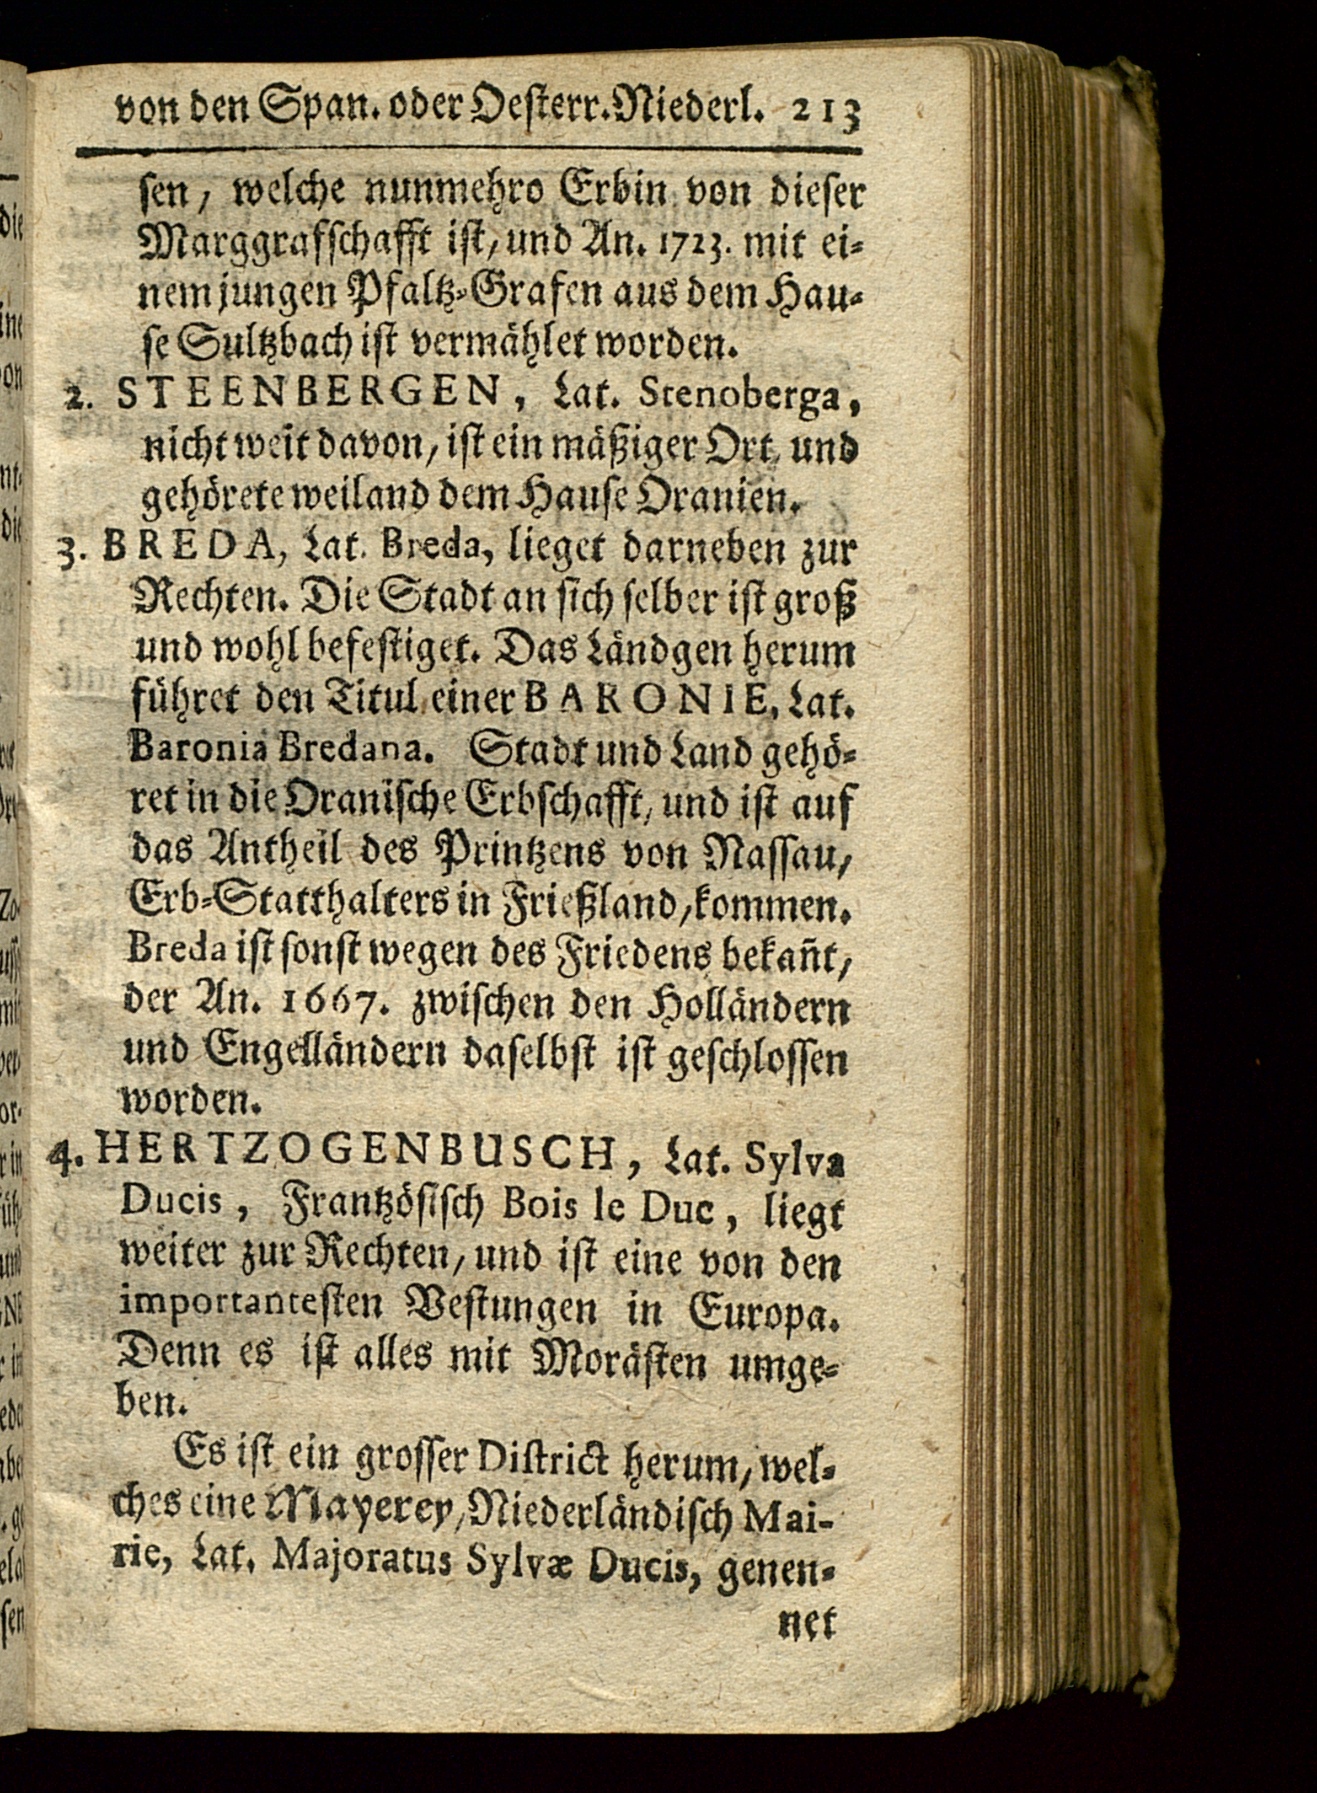 von den Span. oder Oesterr. Niederl. 213
sen, welche nunmehro Erbin von dieser
Marggrafschafft ist, und An. 1723. mit ei-
nem jungen Pfaltz-Grafen aus dem Hau-
se Sultzbach ist vermählet worden.
2. STEENBERGEN, Lat. Stenoberga,
nicht weit davon, ist ein mäßiger Ort, und
gehörete weiland dem Hause Oranien.
3. BREDA, Lat. Breda, lieget darneben zur
Rechten. Die Stadt an sich selber ist groß
und wohl befestiget. Das Ländgen herum
führet den Titul einer BARONIE, Lat.
Baronia Bredana. Stadt und Land gehö-
ret in die Oranische Erbschafft, und ist auf
das Antheil des Printzens von Nassau,
Erb-Statthalters in Frießland, kommen.
Breda ist sonst wegen des Friedens bekañt,
der An. 1667. zwischen den Holländern
und Engelländern daselbst ist geschlossen
worden.
4. HERTZOGENBUSCH, Lat. Sylva
Ducis, Frantzösisch Bois le Duc, liegt
weiter zur Rechten, und ist eine von den
importantesten Vestungen in Europa.
Denn es ist alles mit Morästen umge-
ben.
Es ist ein grosser District herum, wel-
ches eine Mayerey, Niederländisch Mai-
rie, Lat. Majoratus Sylvæ Ducis, genen-
net